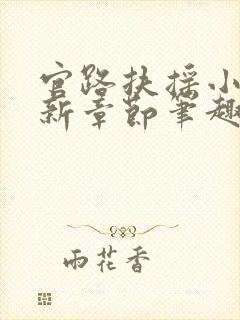 官路扶摇小
新章节笔趣
雨花香